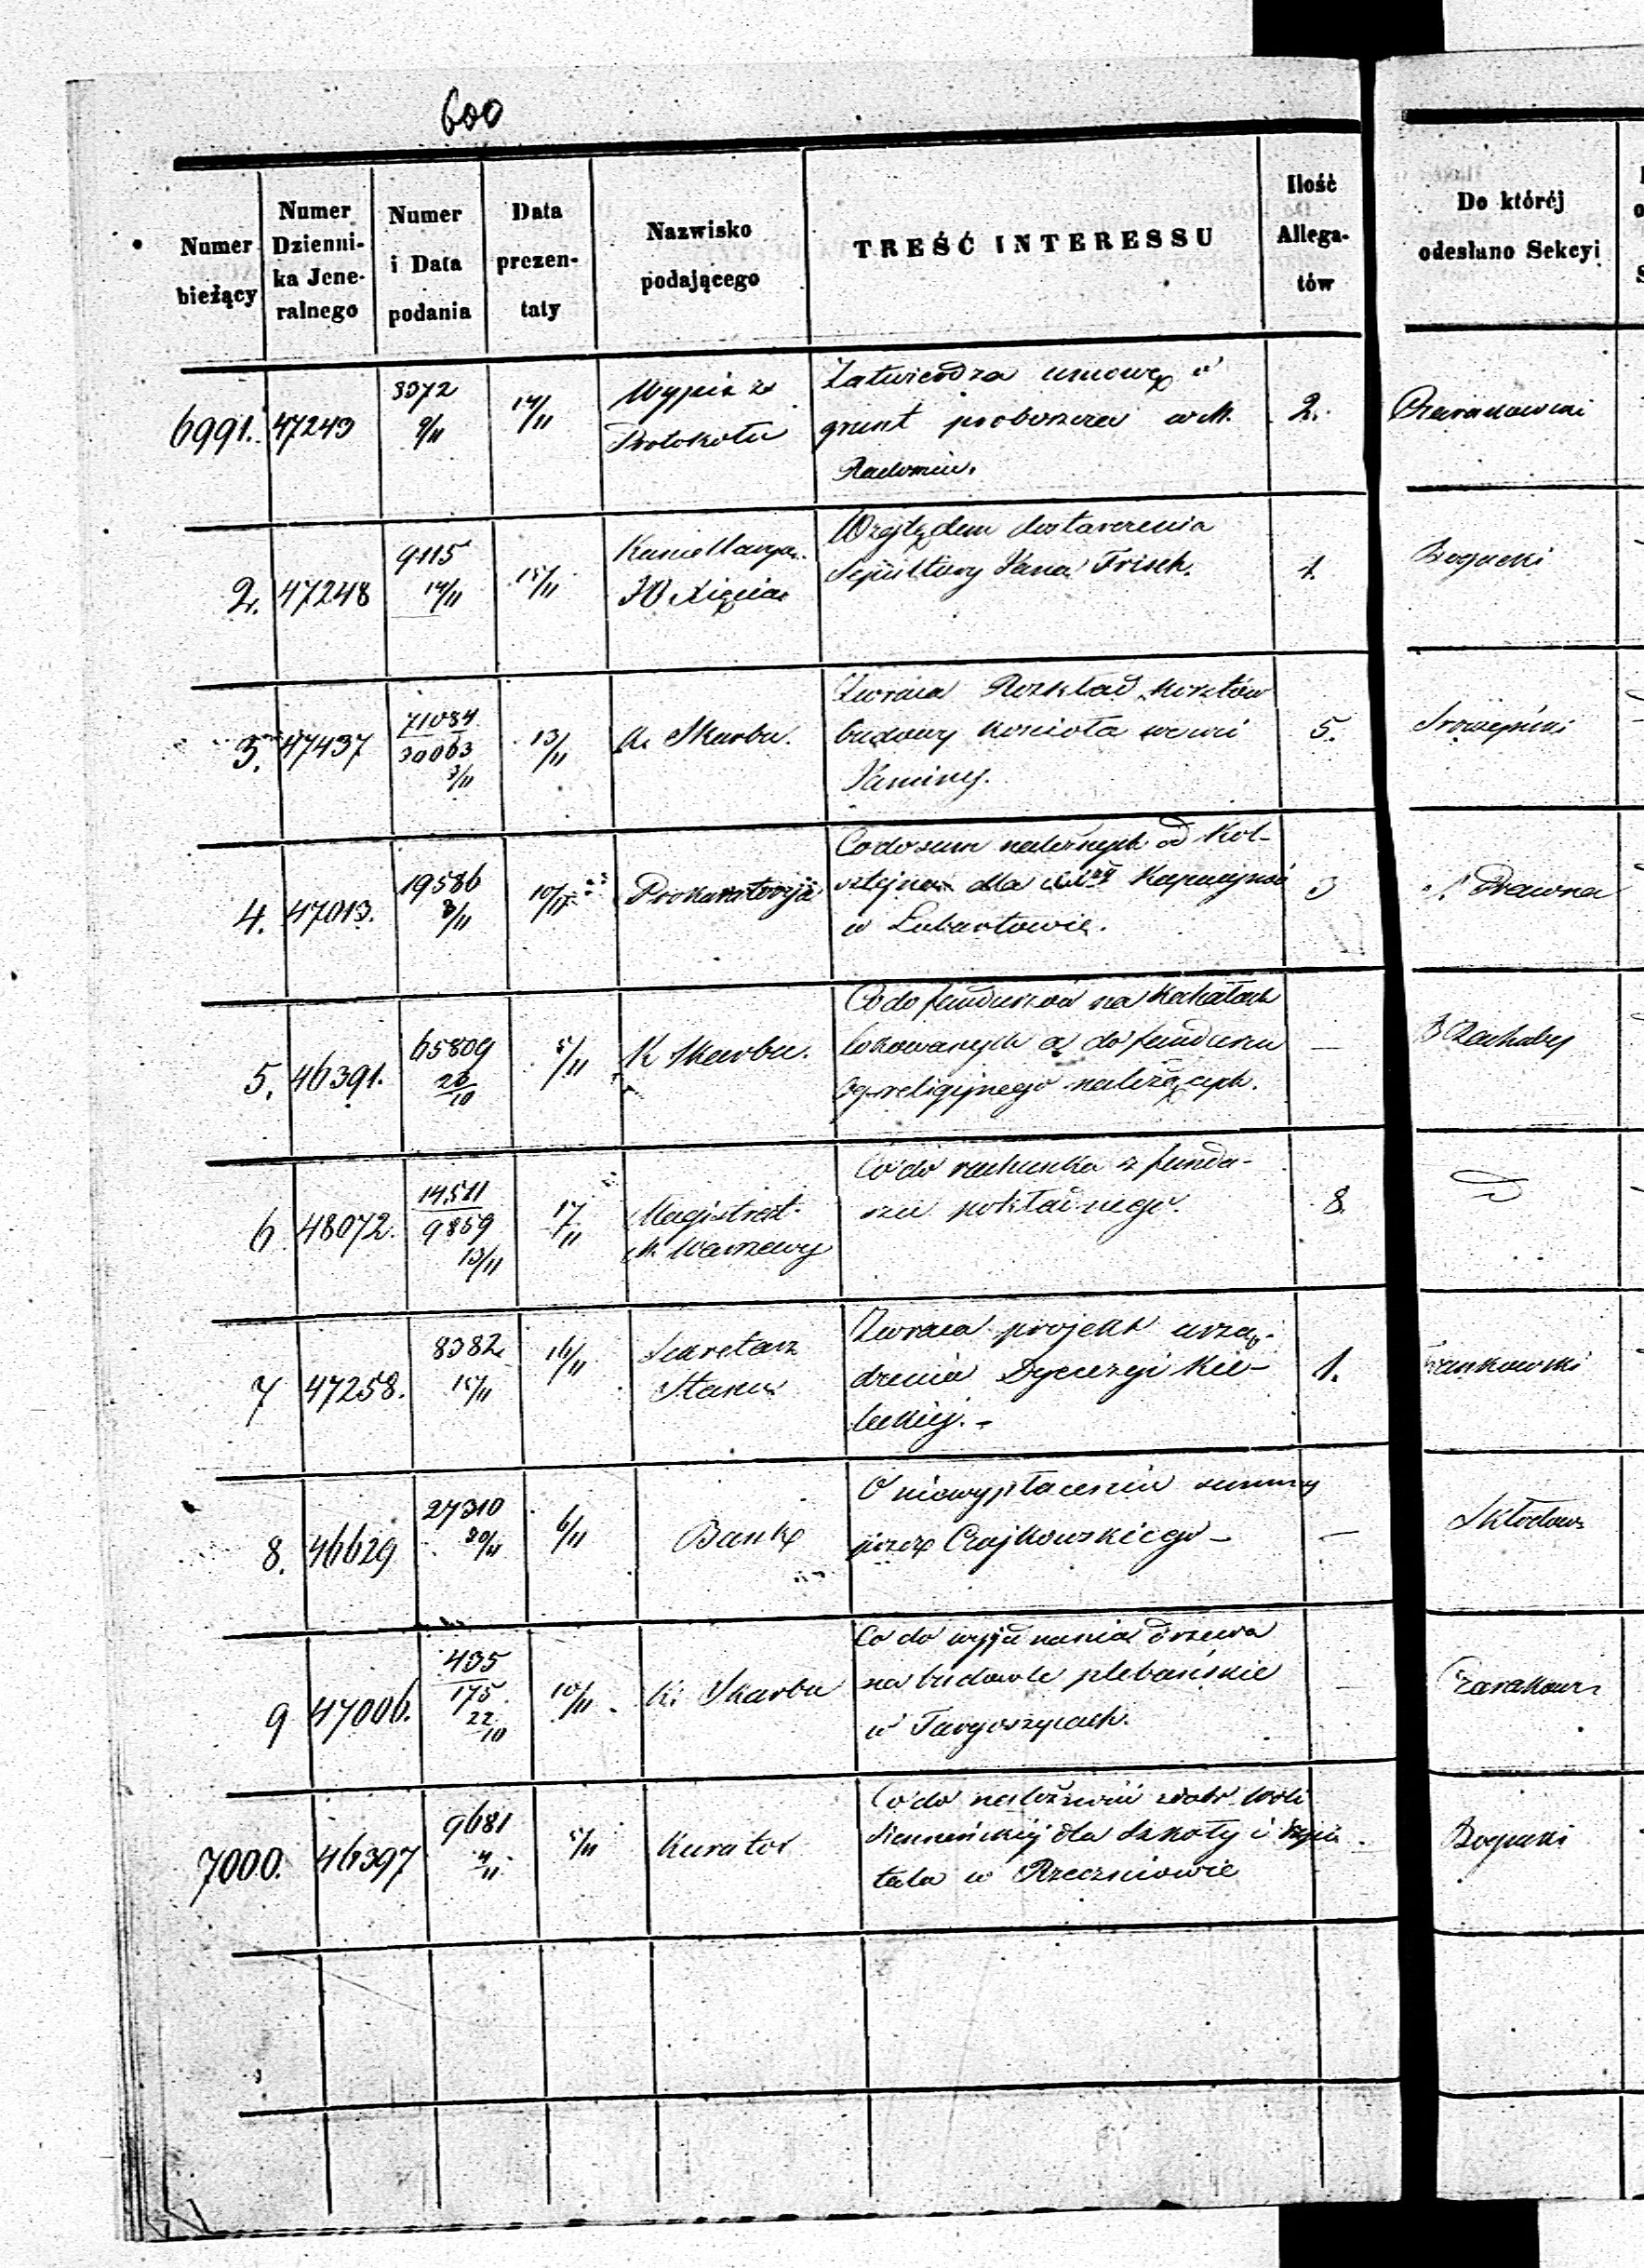 600
Numer bieżący
Numer Dzienni- ka Jene- ralnego
Numer i Data podania
Data prezen- taty
Nazwisko podającego
TREŚĆ INTERESSU
Ilość Allega- tów
Do któréj odesłano Sekcyi
6991. 47243 3372 9/11 14/11 Wypis z Protokołu
Zatwierdza umowę o
grunt proboszcza w M.
Radomiu.
2.
2. 47248 9115 14/11 15/11 Kancellarya JO Xięcia
Względem dostarczenia
Sepultury Jana Frisch.
1.
Bogucki
3. 47437 71084 30063 3/11 13/11 K. Skarbu.
Zwraca Rozkład kosztów
budowy kościoła we wsi
Jaminy.
5.
4. 47013. 19586 3/11 10/11 Prokuratorja
Co do sum należnych od Hol-
sztejna dla Kapucynów
w Lubartowie.
3
Prawna
5. 46391. 65809 26/10 5/11 K Skarbu.
Co do funduszów na Kahałach
lokowanych a do funduszu
religijnego należących.
—
6 48072. 14511 9859 13/11 17/11 Magistrat M. Warszawy
Co do rachunku z fundu-
szu pokładnego.
8.
D
7 47258. 8382 15/11 16/11 Sekretarz Stanu
Zwraca projekt urzą-
dzenia Dyecezyi Kie-
leckiej. -
1.
8. 46629 27310 30/11 6/11 Bank
O niewypłaceniu summy
przez Czajkowskiego -
—
9 47006. 435 175 22/10 10/11 K. Skarbu
Co do wyjednania drzewa
na budowle plebańskie
w Targoszycach.
—
7000. 46397 9681 4/11 5/11 Kurator
Co do należności z dóbr Woli
Sienneńskiej dla Szkoły i Szpi
tala w Rzeczniowie
Bogucki